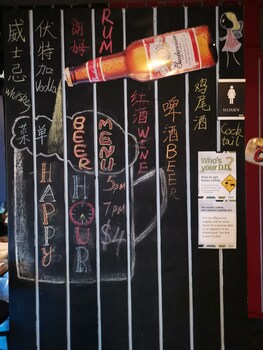 威士忌
Whiskey
伏特加
Vodka
朗姆
RUM
Budweiser
红酒 WINE
啤酒 BEER
鸡尾酒
Cock
tail
WOMEN
菜单
BEER
MENU
HAPPY
HOUR
5pm
7pm
$4
Who's
your D.D.?